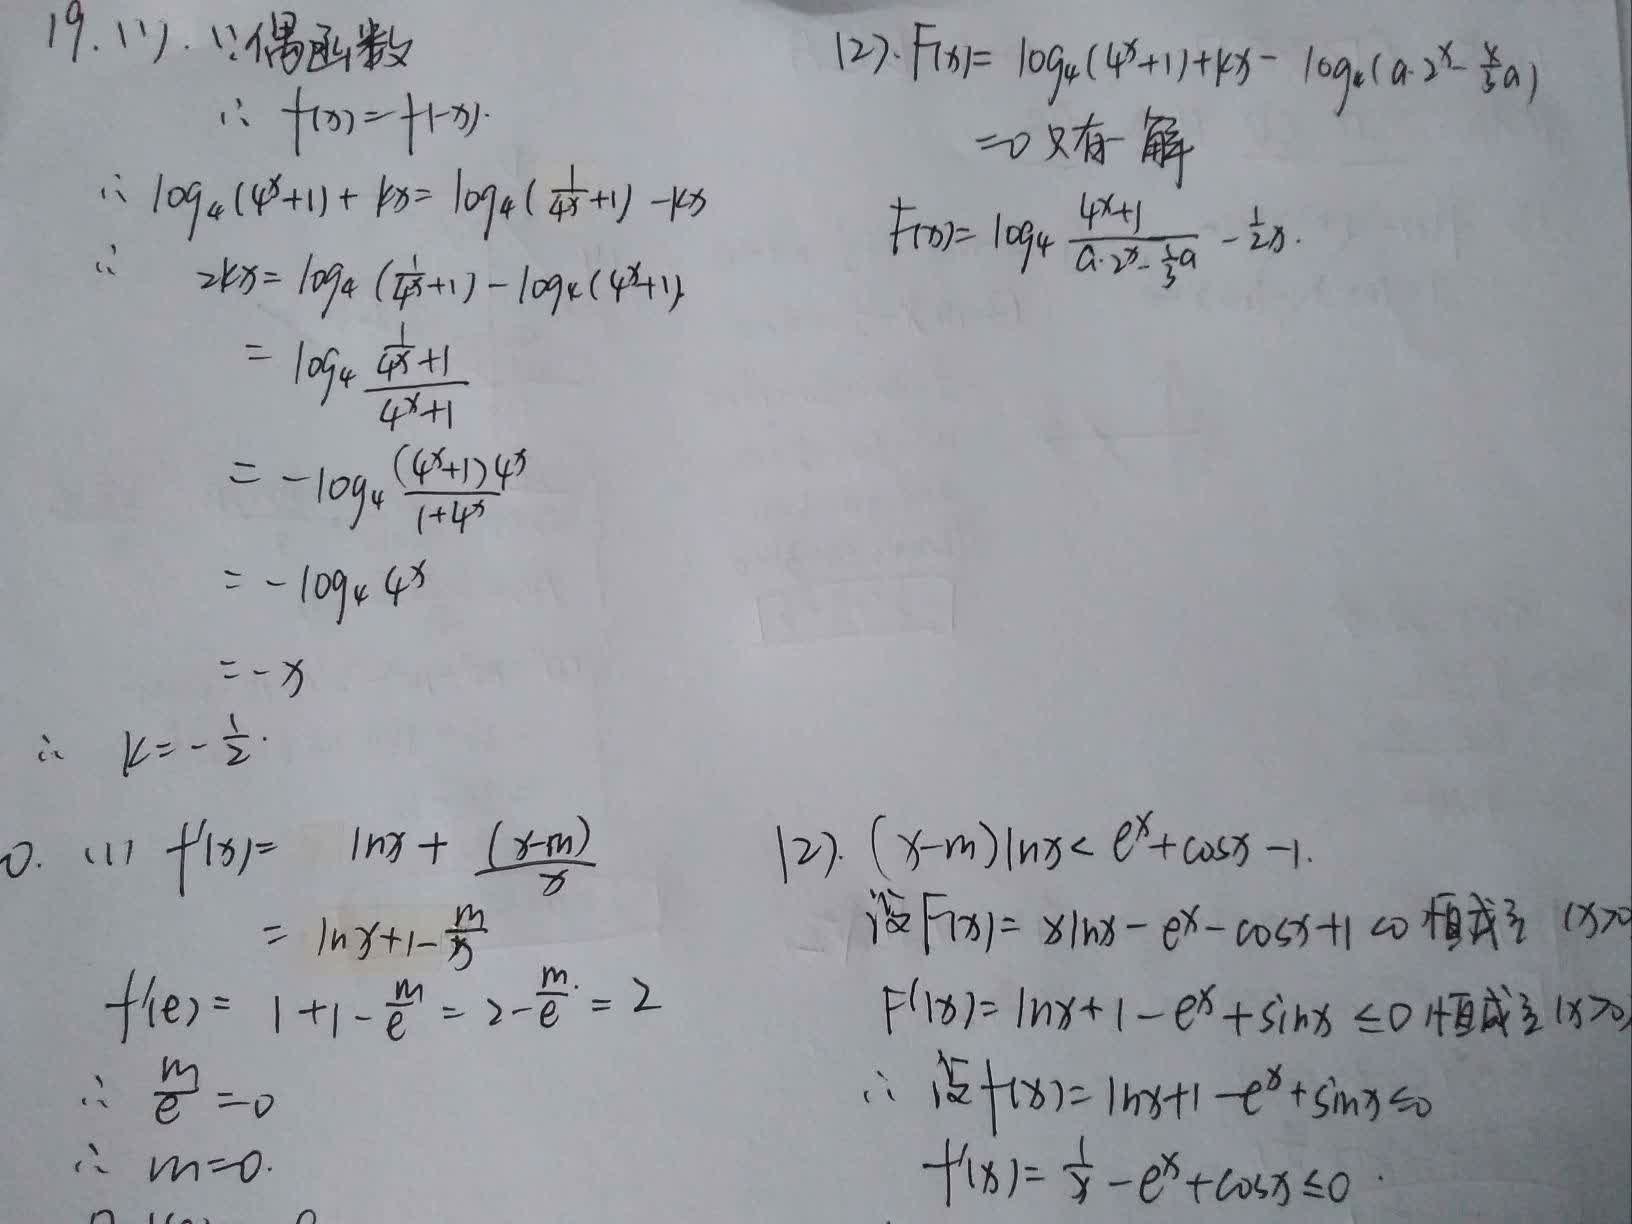 19.(1). ∵偶函数
∴ f(x)=f(-x).
∴ log₄(4ˣ+1)+kx=log₄(1/4ˣ+1)-kx
∴ 2kx=log₄(1/4ˣ+1)-log₄(4ˣ+1)
=log₄ (1/4ˣ+1)/(4ˣ+1)
=-log₄ (4ˣ+1)4ˣ/(1+4ˣ)
=-log₄4ˣ
=-x
∴ k=-1/2.
(2). F(x)=log₄(4ˣ+1)+kx-log₄(a·2ˣ-4/3a)
=0只有一解
F(x)=log₄ (4ˣ+1)/(a·2ˣ-4/3a) -1/2x.
0. (1) f'(x)= lnx+(x-m)/x
=lnx+1-m/x
f'(e)=1+1-m/e=2-m/e=2
∴ m/e=0
∴ m=0.
(2). (x-m)lnx<eˣ+cosx-1.
设F(x)=xlnx-eˣ-cosx+1<0恒成立(x>0
F'(x)=lnx+1-eˣ+sinx≤0恒成立(x>0)
∴ 设f(x)=lnx+1-eˣ+sinx≤0
f'(x)=1/x-eˣ+cosx≤0.